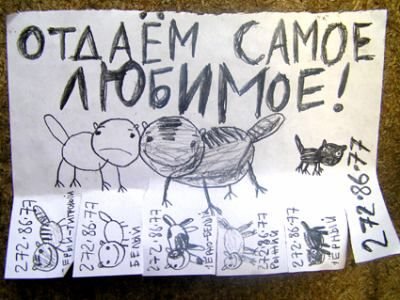 ОТДАЁМ САМОЕ
ЛЮБИМОЕ!
272-86-77
272-86-77
БЕЛЫЙ
272-86-77
272-86-77
РЫЖИЙ
272-86-77
272-86-77